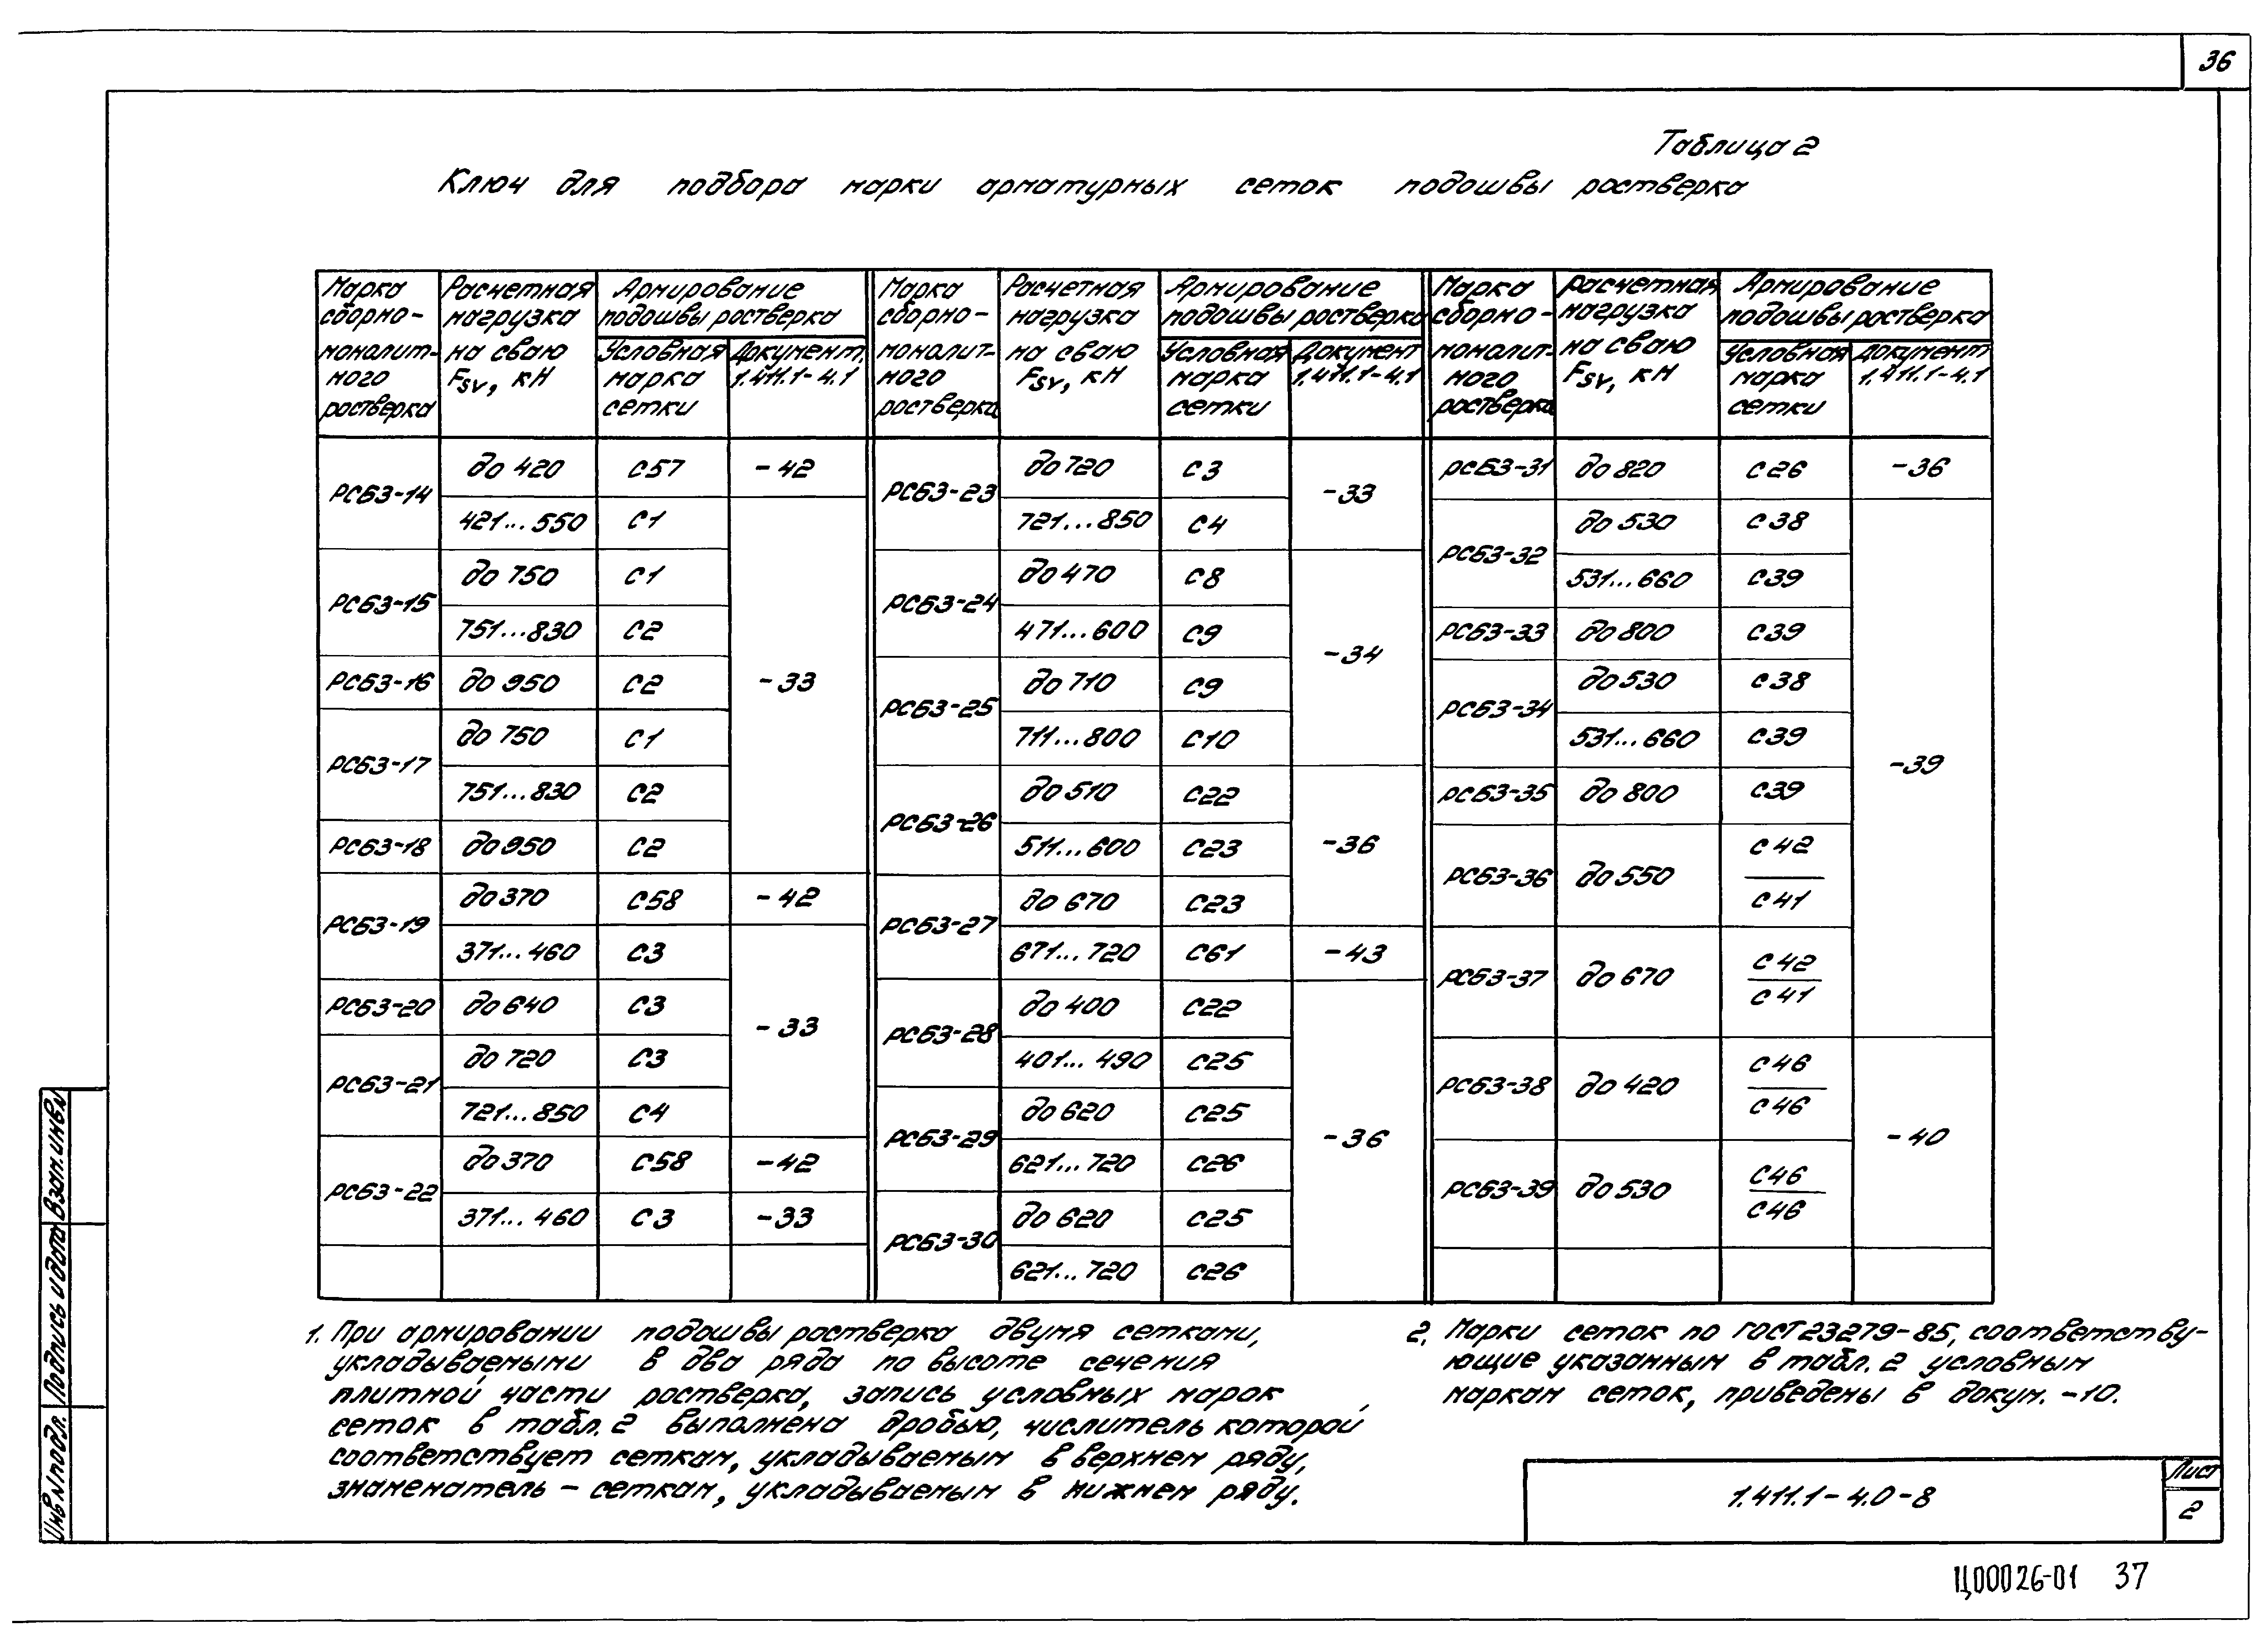 36
Таблица 2
Ключ для подбора марки арматурных сеток подошвы ростверка
Марка сборно-монолитного ростверка | Расчетная нагрузка на сваю Fsv, кН | Армирование подошвы ростверка | Условная марка сетки | Документ 1.411.1-4.1
РСБ3-14 | до 420 | С57 | -42
421...550 | С1 | -33
РСБ3-15 | до 750 | С1
751...830 | С2
РСБ3-16 | до 950 | С2
РСБ3-17 | до 750 | С1
751...830 | С2
РСБ3-18 | до 950 | С2
РСБ3-19 | до 370 | С58 | -42
371...460 | С3 | -33
РСБ3-20 | до 640 | С3
РСБ3-21 | до 720 | С3
721...850 | С4
РСБ3-22 | до 370 | С58 | -42
371...460 | С3 | -33
Марка сборно-монолитного ростверка | Расчетная нагрузка на сваю Fsv, кН | Армирование подошвы ростверка | Условная марка сетки | Документ 1.411.1-4.1
РСБ3-23 | до 720 | С3 | -33
721...850 | С4
РСБ3-24 | до 470 | С8 | -34
471...600 | С9
РСБ3-25 | до 710 | С9
711...800 | С10
РСБ3-26 | до 510 | С22 | -36
511...600 | С23
РСБ3-27 | до 670 | С23
671...720 | С61 | -43
РСБ3-28 | до 400 | С22 | -36
401...490 | С25
РСБ3-29 | до 620 | С25
621...720 | С26
РСБ3-30 | до 620 | С25
621...720 | С26
Марка сборно-монолитного ростверка | Расчетная нагрузка на сваю Fsv, кН | Армирование подошвы ростверка | Условная марка сетки | Документ 1.411.1-4.1
РСБ3-31 | до 820 | С26 | -36
РСБ3-32 | до 530 | С38 | -39
531...660 | С39
РСБ3-33 | до 800 | С39
РСБ3-34 | до 530 | С38
531...660 | С39
РСБ3-35 | до 800 | С39
РСБ3-36 | до 550 | С42/С41
РСБ3-37 | до 670 | С42/С41
РСБ3-38 | до 420 | С46/С46 | -40
РСБ3-39 | до 530 | С46/С46
1. При армировании подошвы ростверка двумя сетками,
укладываемыми в два ряда по высоте сечения
плитной части ростверка, запись условных марок
сеток в табл. 2 выполнена дробью, числитель которой
соответствует сеткам, укладываемым в верхнем ряду,
знаменатель – сеткам, укладываемым в нижнем ряду.
2. Марки сеток по ГОСТ 23279-85, соответству-
ющие указанным в табл. 2 условным
маркам сеток, приведены в докум. -10.
Инв.№подл. Подпись и дата Взам.инв.№
1.411.1-4.0-8
Лист
2
Ц00026-01 37